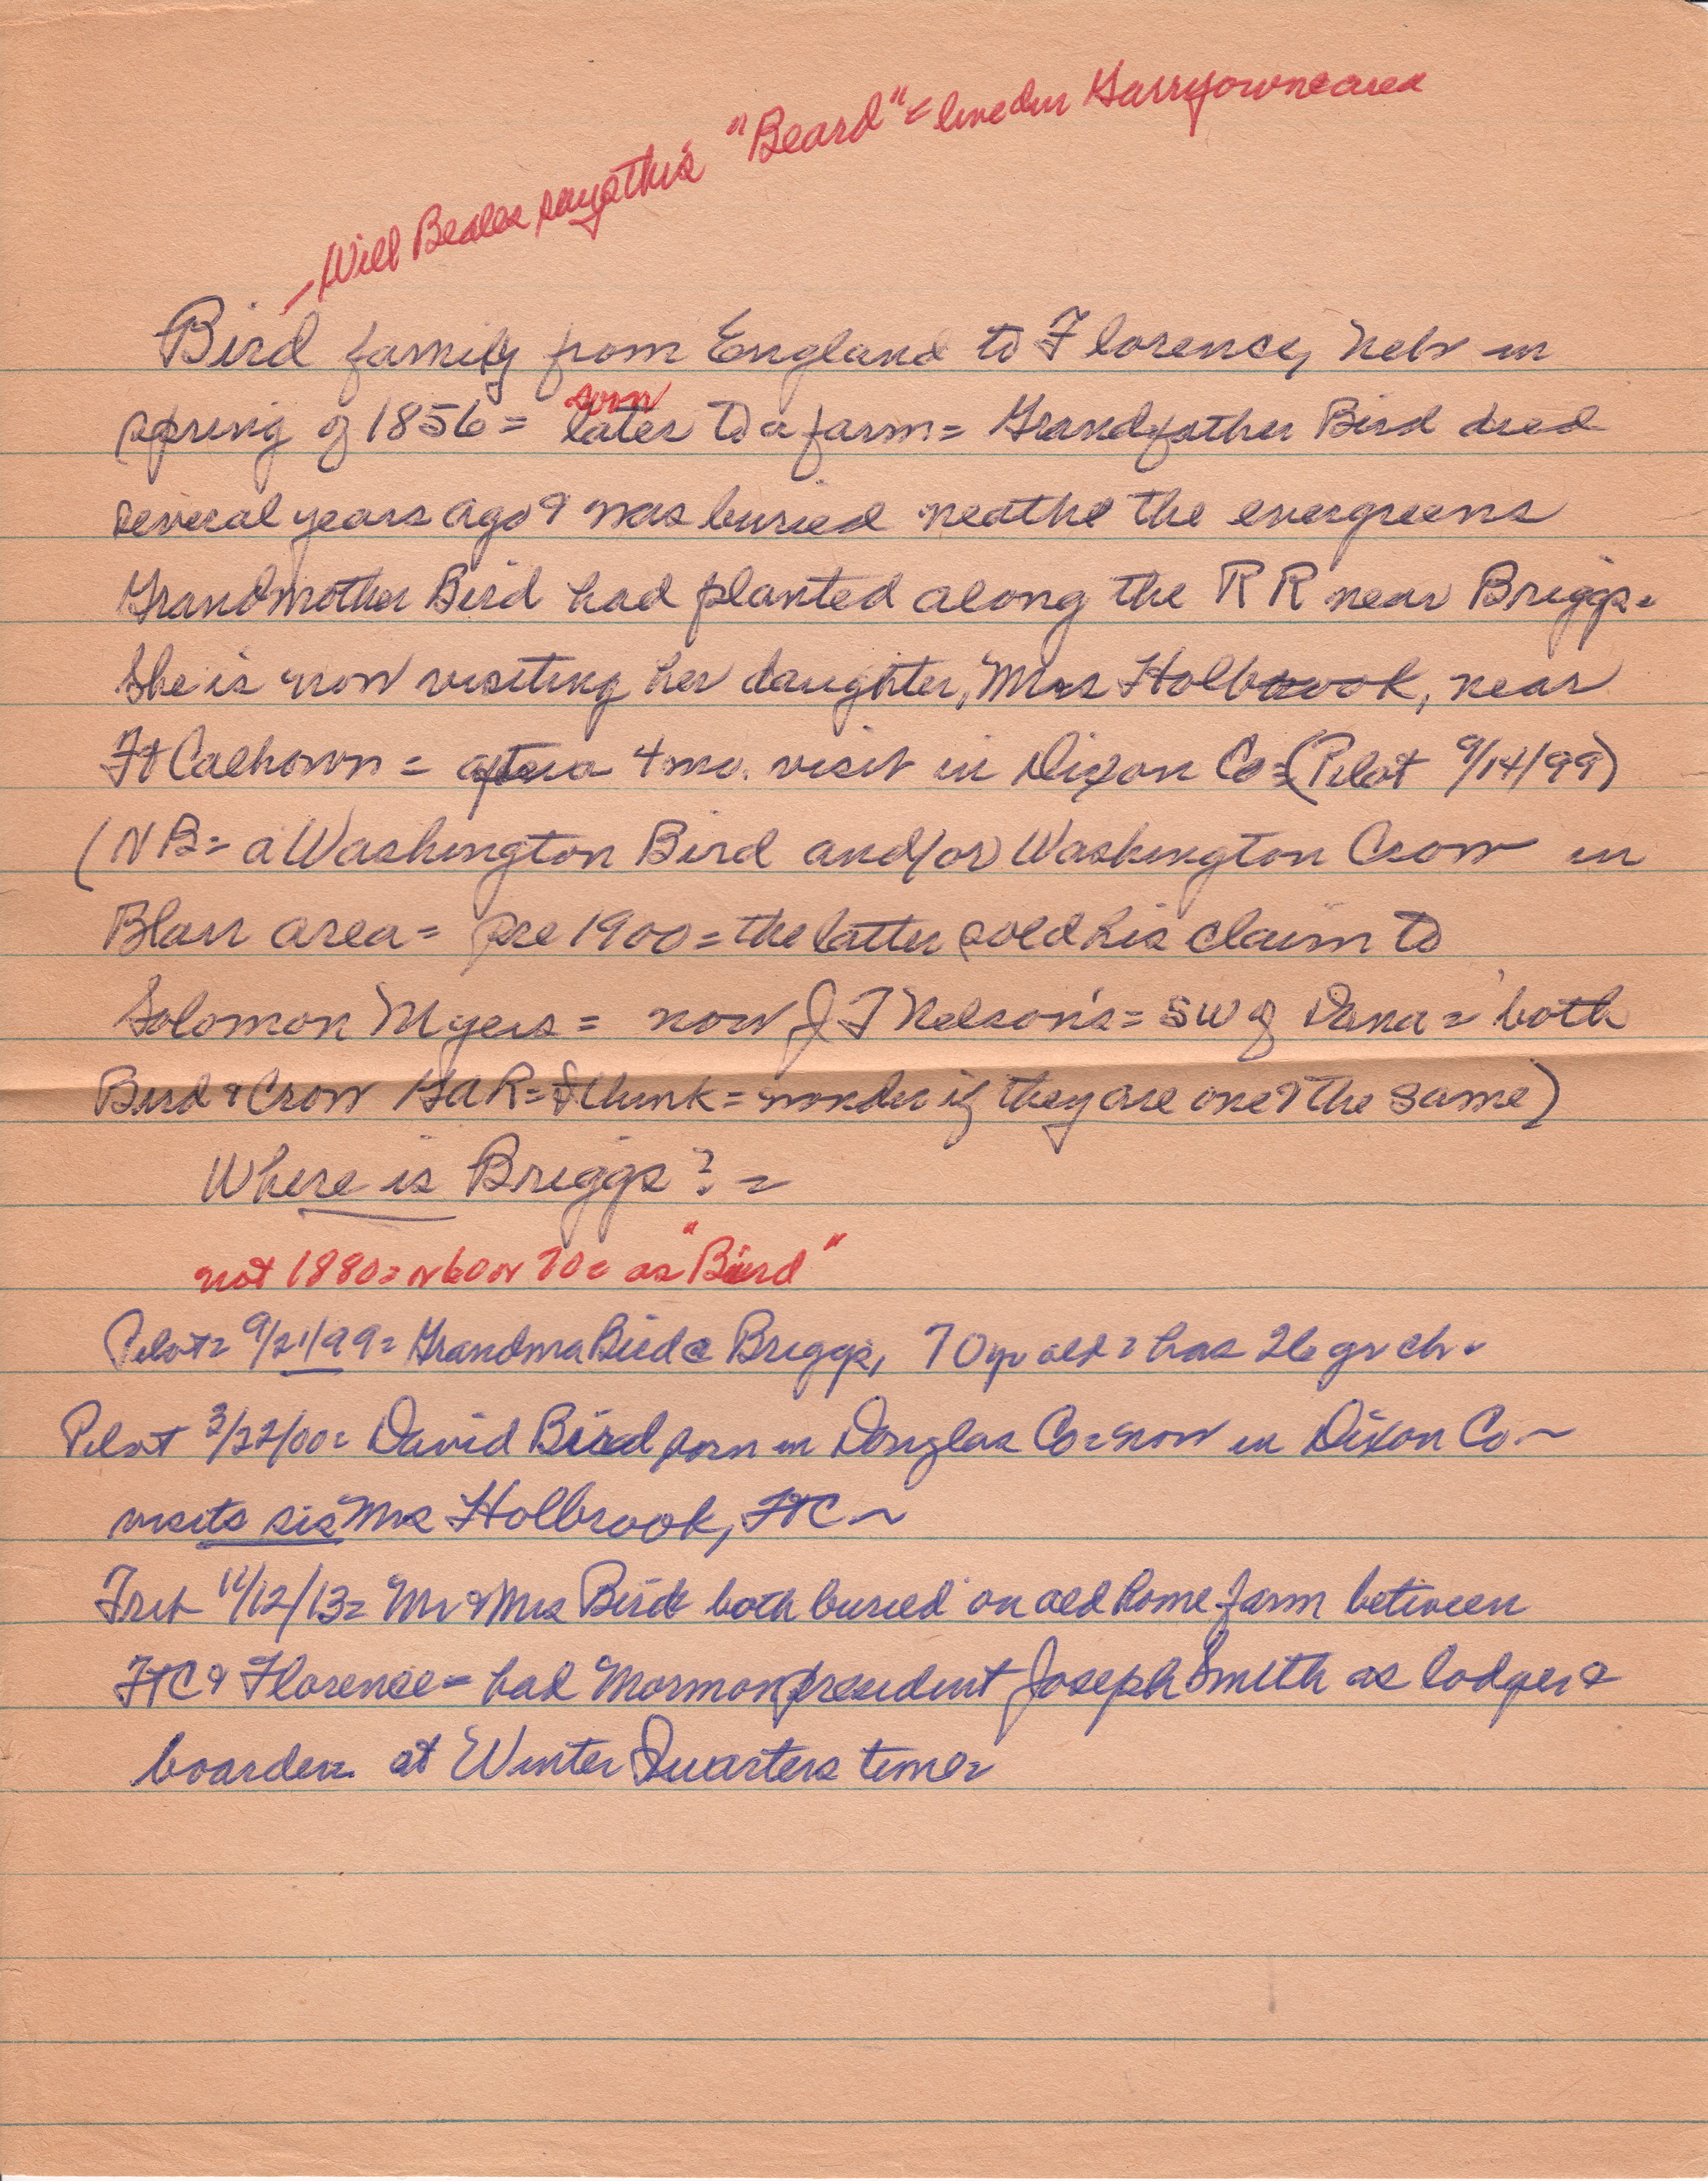 – Will Beales says this "Beard" = lived in Garryowne area
Bird family from England to Florence, Nebr in
soon
spring of 1856 = later to a farm = Grandfather Bird died
several years ago & was buried neathe the evergreens
Grandmother Bird had planted along the RR near Briggs.
She is now visiting her daughter, Mrs Holbrook, near
Ft Calhoun = after a 4 mo. visit in Dixon Co = (Pilot 9/14/99)
(NB = a Washington Bird and/or Washington Crow in
Blair area = pre 1900 = the latter sold his claim to
Solomon Myers = now J T Nelson's = SW of Dana = both
Bird & Crow GAR = I think = wonder if they are one & the same)
Where is Briggs? =
not 1880 = or 60 or 70 = as "Bird"
Pilot = 9/21/99 = Grandma Bird @ Briggs, 70 yr old = has 26 gr ch.
Pilot 3/22/00 = David Bird born in Douglas Co = now in Dixon Co ~
visits sis Mrs Holbrook, FtC ~
Trib 11/12/13 = Mr & Mrs Bird both buried on old home farm between
FtC & Florence = had Mormon president Joseph Smith as lodger &
boarder at Winter Quarters time =